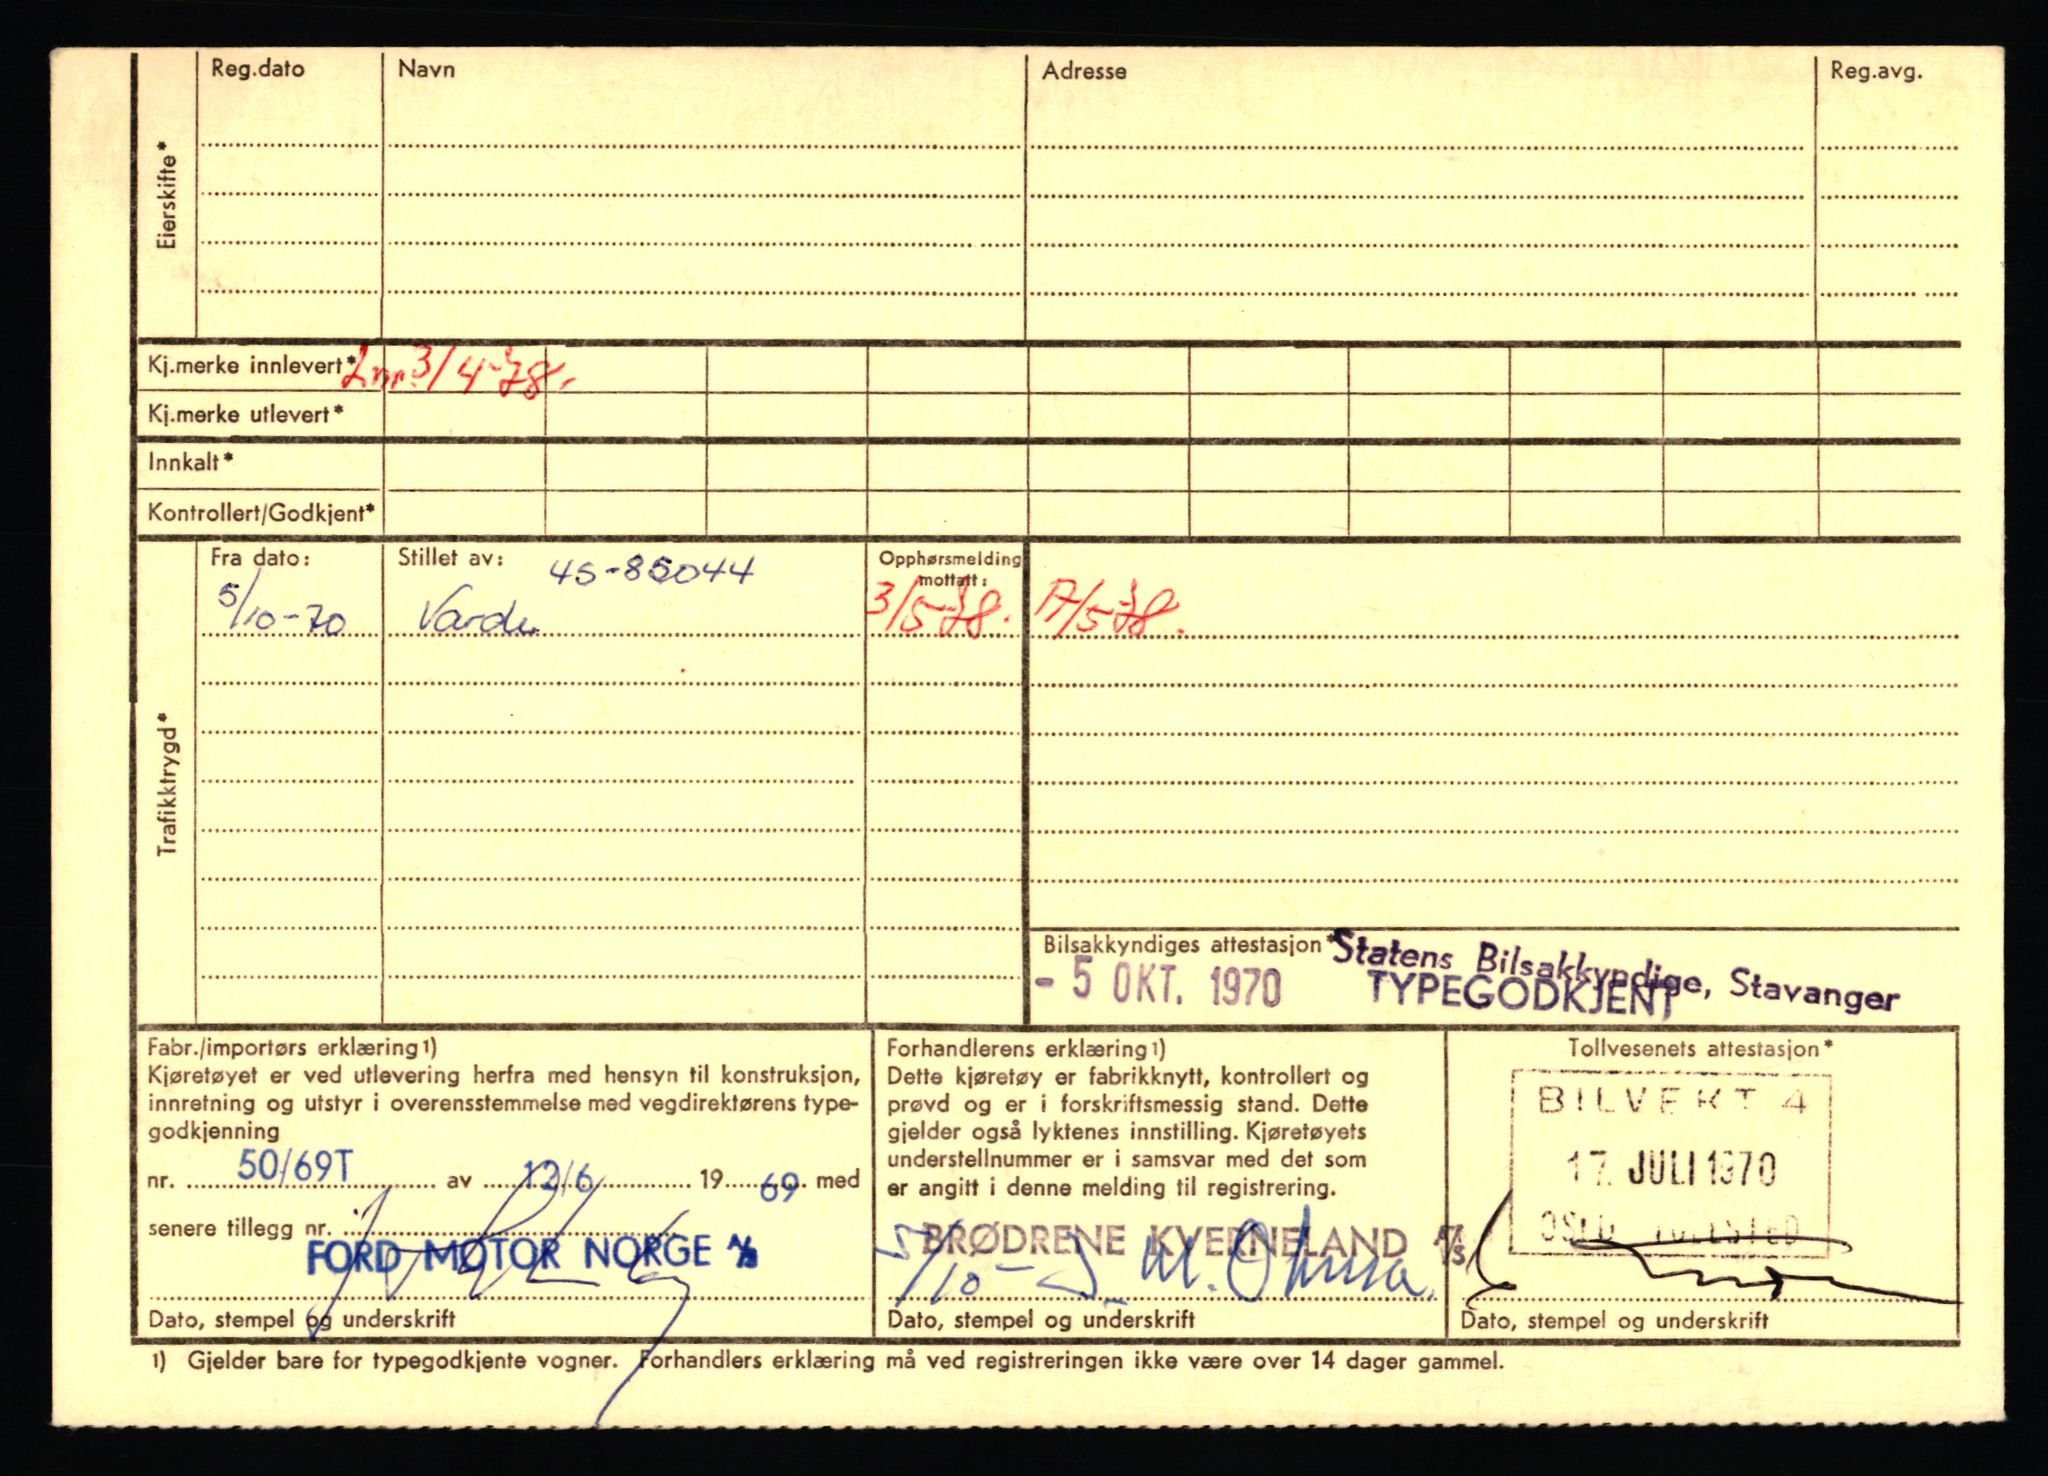 Reg.dato Navn Adresse Reg.avg.
Eierskifte*
Kj.merke innlevert* Lnr. 3/4-78.
Kj.merke utlevert*
Innkalt*
Kontrollert/Godkjent*
Trafikktrygd*
Fra dato: Stillet av: 45-85044 Opphørsmelding mottatt:
5/10-70 Varde 3/5-78. 17/5-78.
Bilsakkyndiges attestasjon* Statens Bilsakkyndige, Stavanger
- 5 OKT. 1970 TYPEGODKJENT
Fabr./importørs erklæring1)
Kjøretøyet er ved utlevering herfra med hensyn til konstruksjon,
innretning og utstyr i overensstemmelse med vegdirektørens type-
godkjenning
nr. 50/69T av 12/6 19 69 med
senere tillegg nr.
FORD MOTOR NORGE A/S
Dato, stempel og underskrift
Forhandlerens erklæring1)
Dette kjøretøy er fabrikknytt, kontrollert og
prøvd og er i forskriftsmessig stand. Dette
gjelder også lyktenes innstilling. Kjøretøyets
understellnummer er i samsvar med det som
er angitt i denne melding til registrering.
BRØDRENE KVERNELAND A/S
5/10-
Dato, stempel og underskrift
Tollvesenets attestasjon*
BILVEKT 4
17. JULI 1970
OSLO TOLLSTED
Dato, stempel og underskrift
1) Gjelder bare for typegodkjente vogner. Forhandlers erklæring må ved registreringen ikke være over 14 dager gammel.